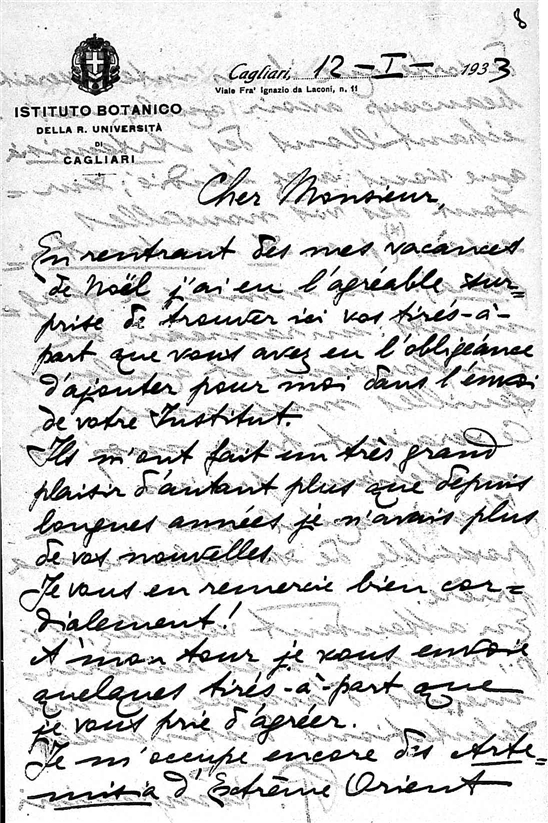 8
Cagliari, 12-I-1933
Viale Fra' Ignazio da Laconi, n. 11
ISTITUTO BOTANICO
DELLA R. UNIVERSITÀ
DI
CAGLIARI
Cher Monsieur,
En rentrant des mes vacances
de Noël j'ai eu l'agréable sur=
prise de trouver ici vos tirés-à-
part que vous avez eu l'obligeance
d'ajouter pour moi dans l'envoi
de votre Institut.
Ils m'ont fait un très grand
plaisir d'autant plus que depuis
longues années je n'avais plus
de vos nouvelles.
Je vous en remercie bien cor=
dialement!
A' mon tour je vous envoie
quelques tirés-à-part que
je vous prie d'agréer.
Je m'occupe encore des Arte=
misia d'Extrême Orient